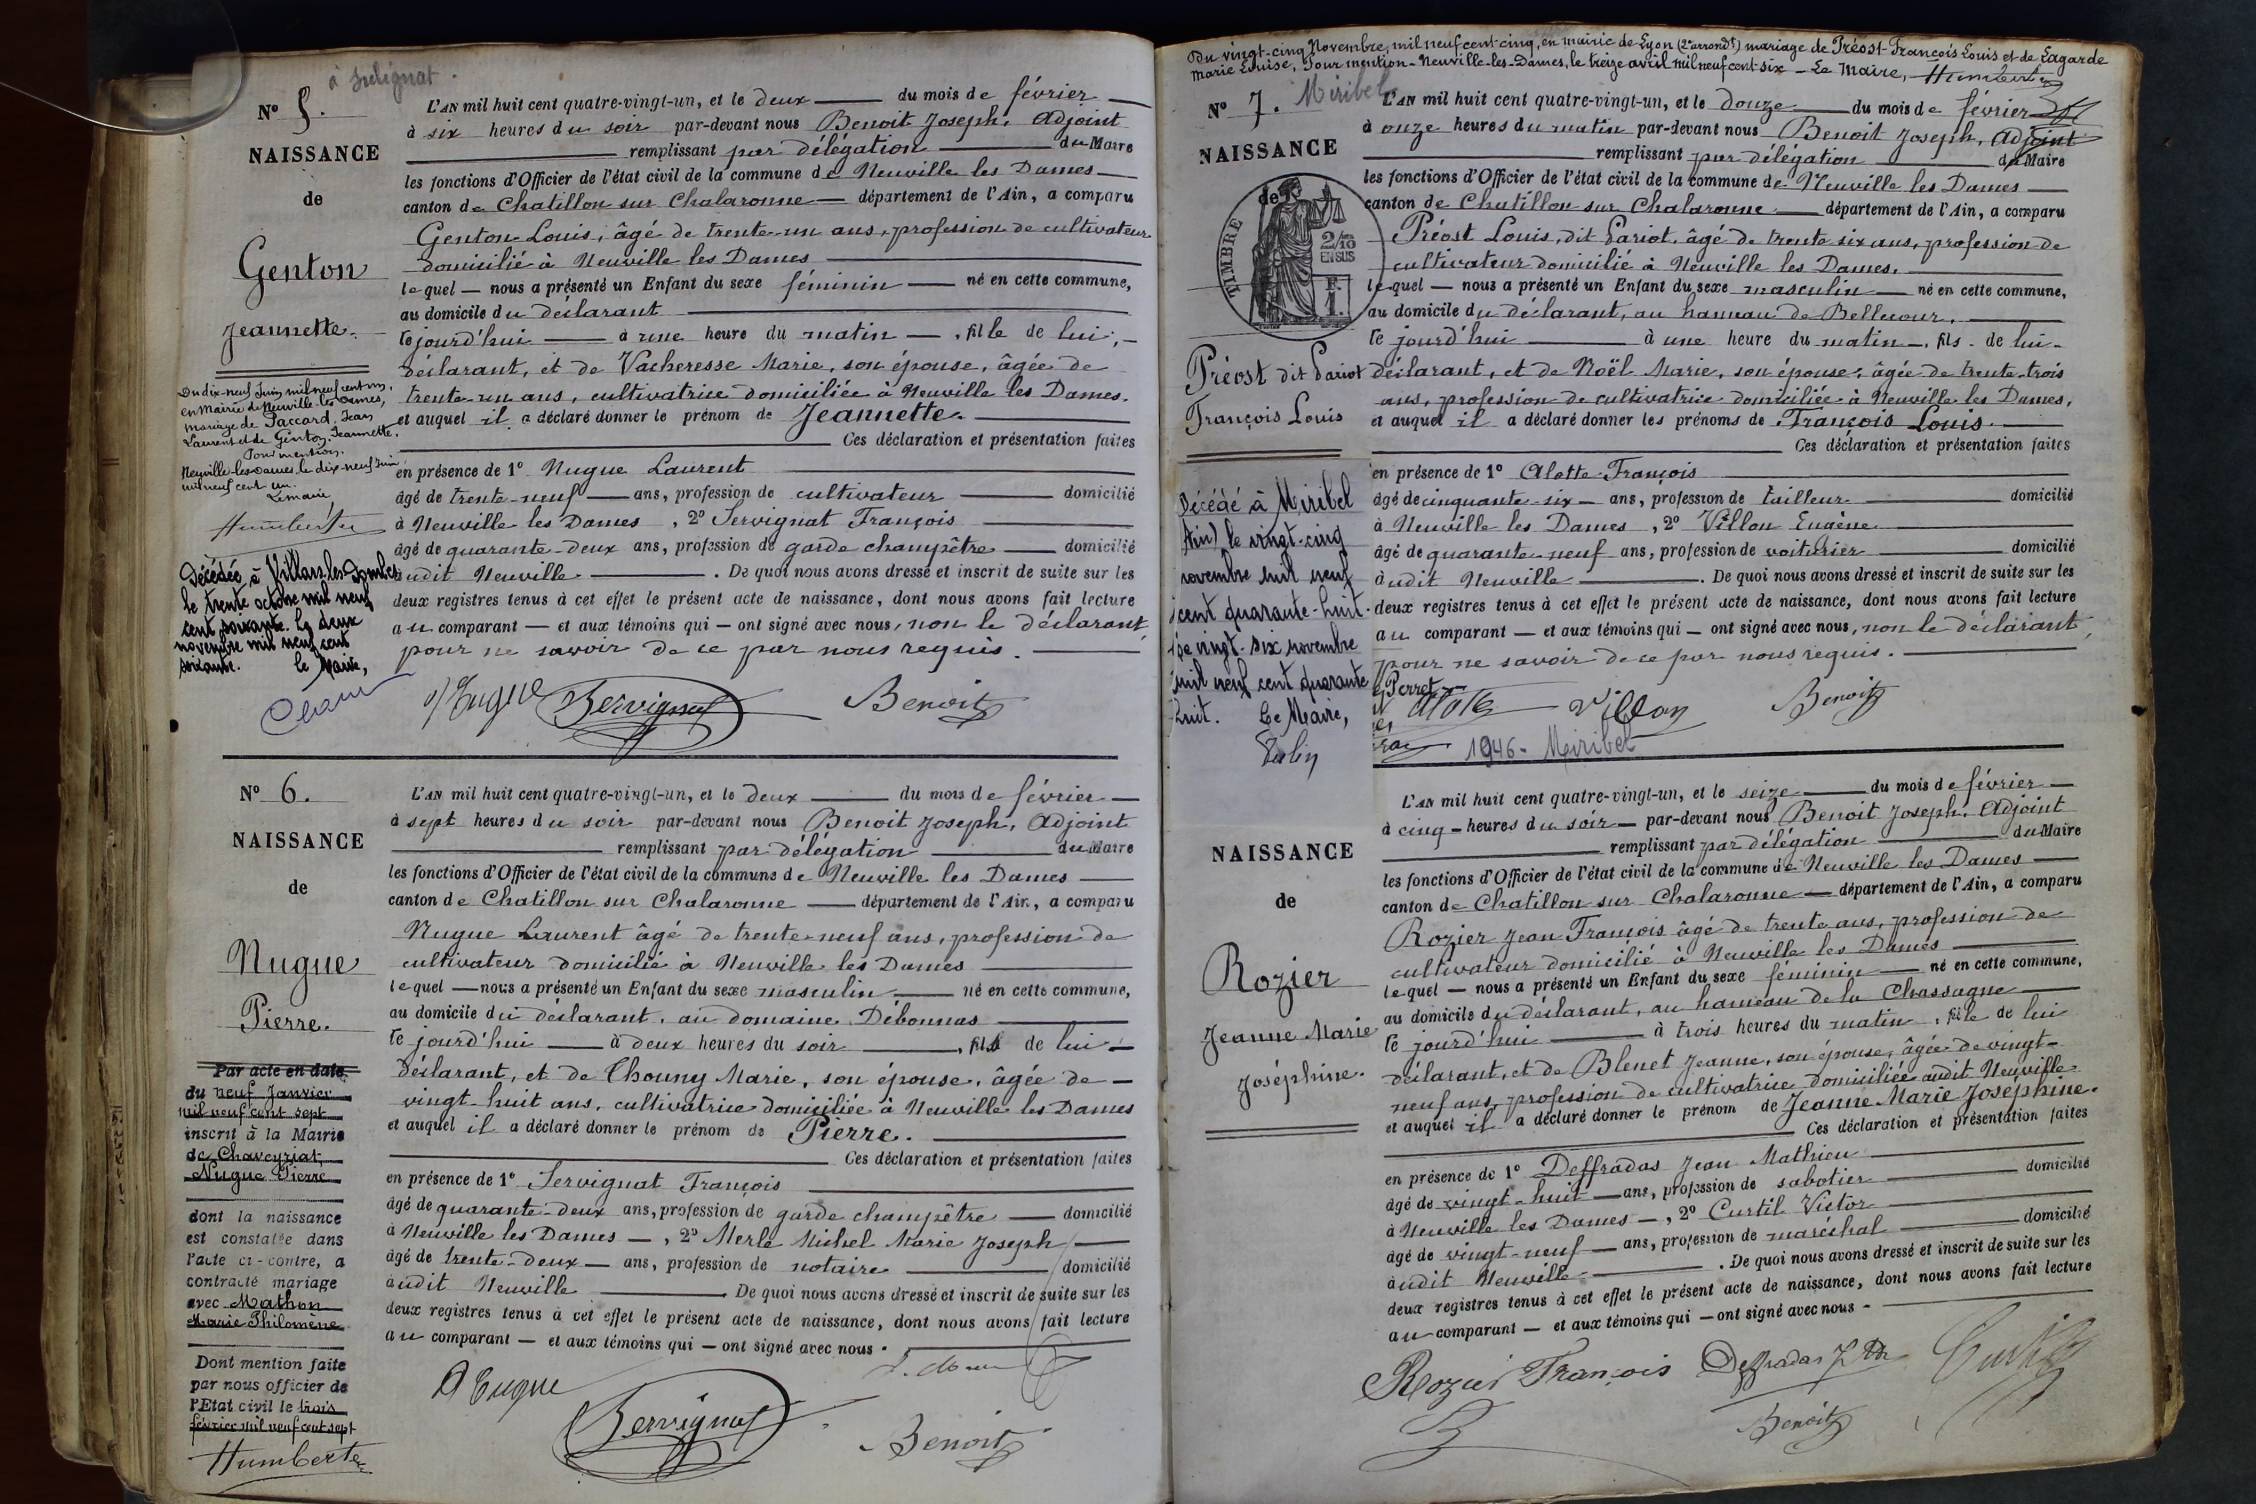 à Sulignat.
N° 5.
NAISSANCE
de
Genton
Jeannette.
Du dix-neuf Juin mil neuf cent un,
en Mairie de Neuville-les-Dames,
mariage de Paccard, Jean
Laurent et de Genton, Jeannette.
Pour mention.
Neuville-les-Dames le dix-neuf Juin
mil neuf cent un.
Le maire,
Humbert
Décédée à Villars-les-Dombes
le trente octobre mil neuf
cent soixante. Le deux
novembre mil neuf cent
soixante. le Maire,
L'AN mil huit cent quatre-vingt-un, et le deux du mois de février
à six heures du soir par-devant nous Benoit Joseph, Adjoint
remplissant par délégation du Maire
les fonctions d'Officier de l'état civil de la commune de Neuville les Dames
canton de Chatillon sur Chalaronne département de l'Ain, a comparu
Genton Louis, âgé de trente-un ans, profession de cultivateur
domicilié à Neuville les Dames
lequel nous a présenté un Enfant du sexe féminin né en cette commune,
au domicile du déclarant
le jourd'hui à une heure du matin, fille de lui,
déclarant, et de Vacheresse Marie, son épouse, âgée de
trente-un ans, cultivatrice domiciliée à Neuville les Dames.
et auquel il a déclaré donner le prénom de Jeannette.
Ces déclaration et présentation faites
en présence de 1° Nugue Laurent
âgé de trente-neuf ans, profession de cultivateur domicilié
à Neuville les Dames, 2° Servignat François
âgé de quarante-deux ans, profession de garde champêtre domicilié
audit Neuville. De quoi nous avons dressé et inscrit de suite sur les
deux registres tenus à cet effet le présent acte de naissance, dont nous avons fait lecture
au comparant et aux témoins qui ont signé avec nous, non le déclarant,
pour ne savoir de ce par nous requis.
Nugue Servignat Benoit
N° 6.
NAISSANCE
de
Nugue
Pierre.
Par acte en date
du neuf Janvier
mil neuf cent sept
inscrit à la Mairie
de Chaveyriat,
Nugue Pierre
dont la naissance
est constatée dans
l'acte ci-contre, a
contracté mariage
avec Mathon
Marie Philomène
Dont mention faite
par nous officier de
l'Etat civil le trois
février mil neuf cent sept
Humbert
L'AN mil huit cent quatre-vingt-un, et le deux du mois de février
à sept heures du soir par-devant nous Benoit Joseph, Adjoint
remplissant par délégation du Maire
les fonctions d'Officier de l'état civil de la commune de Neuville les Dames
canton de Chatillon sur Chalaronne département de l'Ain, a comparu
Nugue Laurent âgé de trente-neuf ans, profession de
cultivateur domicilié à Neuville les Dames
lequel nous a présenté un Enfant du sexe masculin né en cette commune,
au domicile du déclarant, au domaine Débonnas
le jourd'hui à deux heures du soir, fils de lui
déclarant, et de Chouny Marie, son épouse, âgée de
vingt-huit ans, cultivatrice domiciliée à Neuville les Dames
et auquel il a déclaré donner le prénom de Pierre.
Ces déclaration et présentation faites
en présence de 1° Servignat François
âgé de quarante-deux ans, profession de garde champêtre domicilié
à Neuville les Dames, 2° Merle Michel Marie Joseph
âgé de trente-deux ans, profession de notaire domicilié
audit Neuville. De quoi nous avons dressé et inscrit de suite sur les
deux registres tenus à cet effet le présent acte de naissance, dont nous avons fait lecture
au comparant et aux témoins qui ont signé avec nous.
Nugue
Servignat Benoit
Du vingt-cinq Novembre, mil neuf cent cinq, en mairie de Lyon (2e arrondt) mariage de Préost-François Louis et de Lagarde
Marie Louise, Pour mention - Neuville-les-Dames, le treize avril mil neuf cent six - Le Maire, Humbert
N° 7. Miribel
NAISSANCE
de
TIMBRE
2/10 EN SUS
F. 1.
Préost dit Pariot
François Louis
Décédé à Miribel
(Ain) le vingt-cinq
novembre mil neuf
cent quarante-huit.
Le vingt-six novembre
mil neuf cent quarante
huit. Le Maire,
L'AN mil huit cent quatre-vingt-un, et le douze du mois de février
à onze heures du matin par-devant nous Benoit Joseph, Adjoint
remplissant par délégation du Maire
les fonctions d'Officier de l'état civil de la commune de Neuville les Dames
canton de Chatillon sur Chalaronne département de l'Ain, a comparu
Préost Louis, dit Pariot, âgé de trente six ans, profession de
cultivateur domicilié à Neuville les Dames.
lequel nous a présenté un Enfant du sexe masculin né en cette commune,
au domicile du déclarant, au hameau de Bellecour.
le jourd'hui à une heure du matin, fils de lui-
déclarant, et de Noël Marie, son épouse, âgée de trente-trois
ans, profession de cultivatrice domiciliée à Neuville les Dames,
et auquel il a déclaré donner les prénoms de François Louis.
Ces déclaration et présentation faites
en présence de 1° Alotte François
âgé de cinquante-six ans, profession de tailleur domicilié
à Neuville les Dames, 2° Villon Eugène
âgé de quarante-neuf ans, profession de voiturier domicilié
audit Neuville. De quoi nous avons dressé et inscrit de suite sur les
deux registres tenus à cet effet le présent acte de naissance, dont nous avons fait lecture
au comparant et aux témoins qui ont signé avec nous, non le déclarant,
pour ne savoir de ce par nous requis.
Perret
Alotte Villon Benoit
1946 - Miribel
NAISSANCE
de
Rozier
Jeanne Marie
Joséphine.
L'AN mil huit cent quatre-vingt-un, et le seize du mois de février
à cinq heures du soir par-devant nous Benoit Joseph, Adjoint
remplissant par délégation du Maire
les fonctions d'Officier de l'état civil de la commune de Neuville les Dames
canton de Chatillon sur Chalaronne département de l'Ain, a comparu
Rozier Jean François âgé de trente ans, profession de
cultivateur domicilié à Neuville les Dames
lequel nous a présenté un Enfant du sexe féminin né en cette commune,
au domicile du déclarant, au hameau de la Chassagne
le jourd'hui à trois heures du matin, fille de lui
déclarant, et de Blenet Jeanne, son épouse, âgée de vingt-
neuf ans, profession de cultivatrice domiciliée audit Neuville
et auquel il a déclaré donner le prénom de Jeanne Marie Joséphine.
Ces déclaration et présentation faites
en présence de 1° Deffradas Jean Mathieu
âgé de vingt-huit ans, profession de sabotier domicilié
à Neuville les Dames, 2° Curtil Victor
âgé de vingt-neuf ans, profession de maréchal domicilié
audit Neuville. De quoi nous avons dressé et inscrit de suite sur les
deux registres tenus à cet effet le présent acte de naissance, dont nous avons fait lecture
au comparant et aux témoins qui ont signé avec nous
Rozier François Deffradas Curtil
Benoit